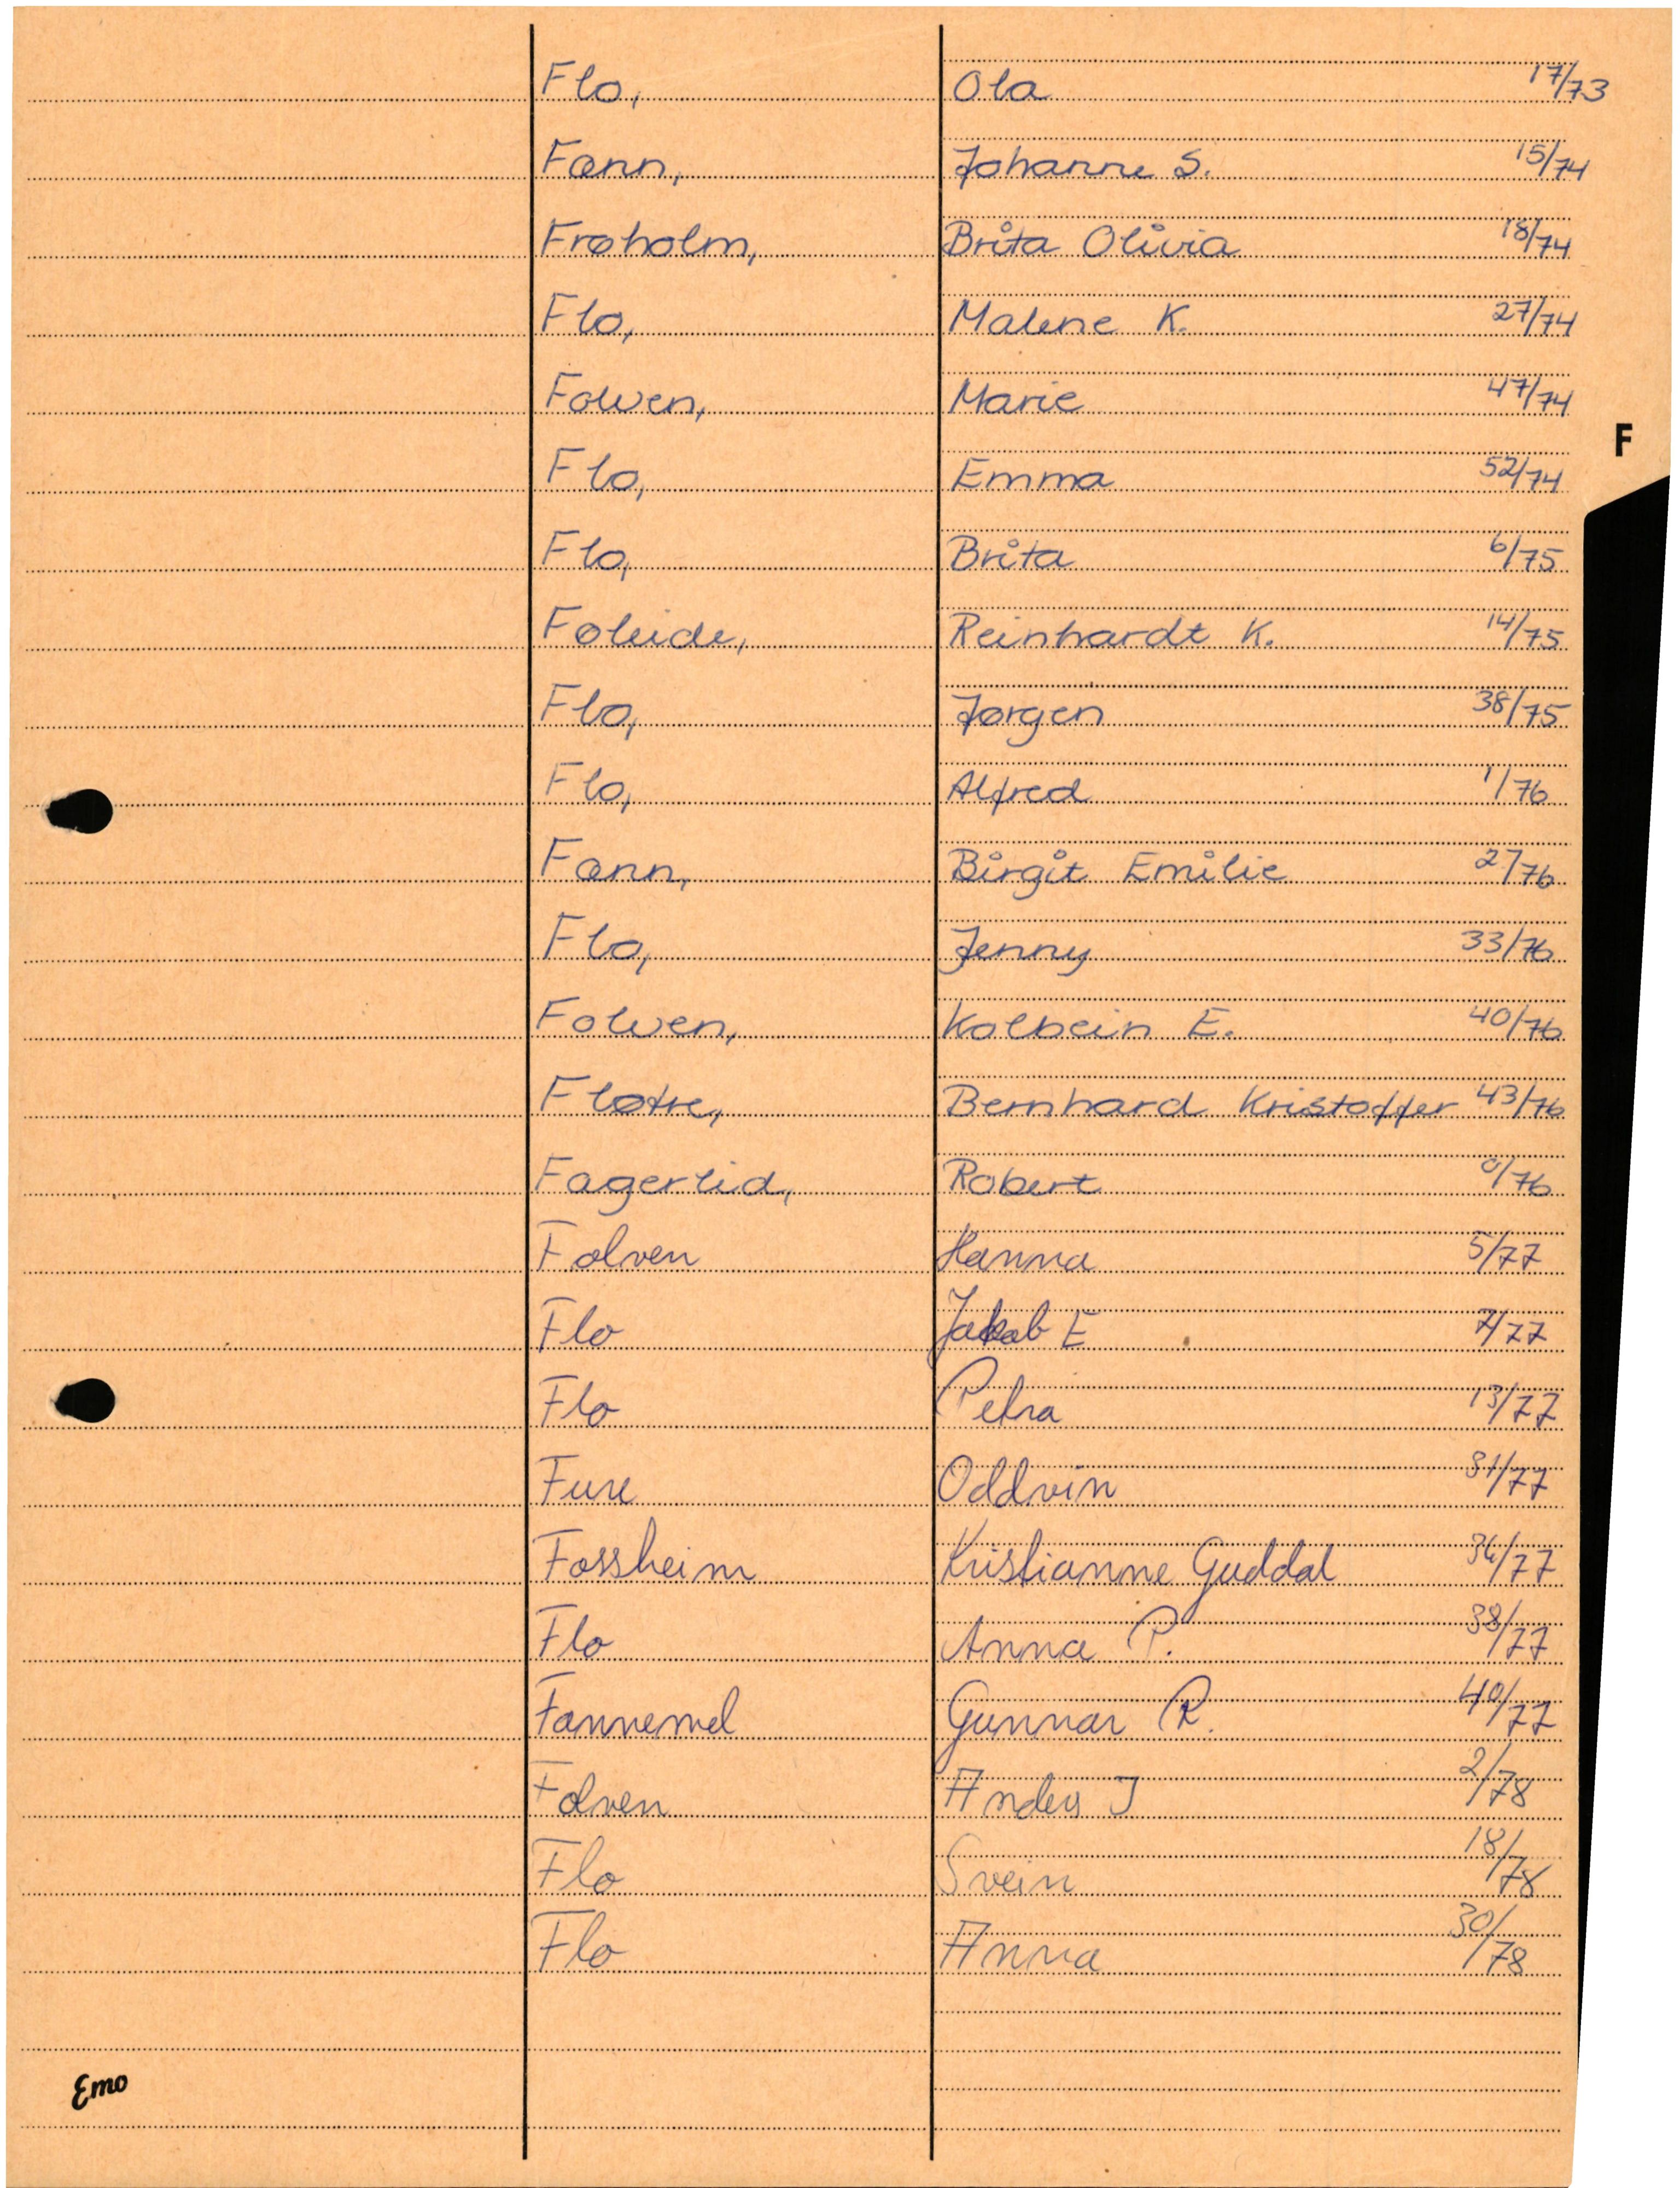 Flo, Ola 17/73
Fænn, Johanne S. 15/74
Frøholm, Brita Olivia 18/74
Flo, Malene K. 27/74
Folven, Marie 47/74
Flo, Emma 52/74
Flo, Brita 6/75
Føleide, Reinhardt K. 14/75
Flo, Jørgen 38/75
F
Flo, Alfred 1/76
Fænn, Birgit Emilie 27/76
Flo, Jenny 33/76
Folven, Kolbein E. 40/76
Fløtre, Bernhard Kristoffer 43/76
Fagerlid, Robert 0/76
Folven Hanna 5/77
Flo Jakob E 7/77
Flo Petra 13/77
Fure Oddvin 31/77
Fossheim Kristianne Guddal 34/77
Flo Anna P. 38/77
Fannemel Gunnar R. 40/77
Folven Anders J 2/78
Flo Svein 18/78
Flo Anna 30/78
Emo